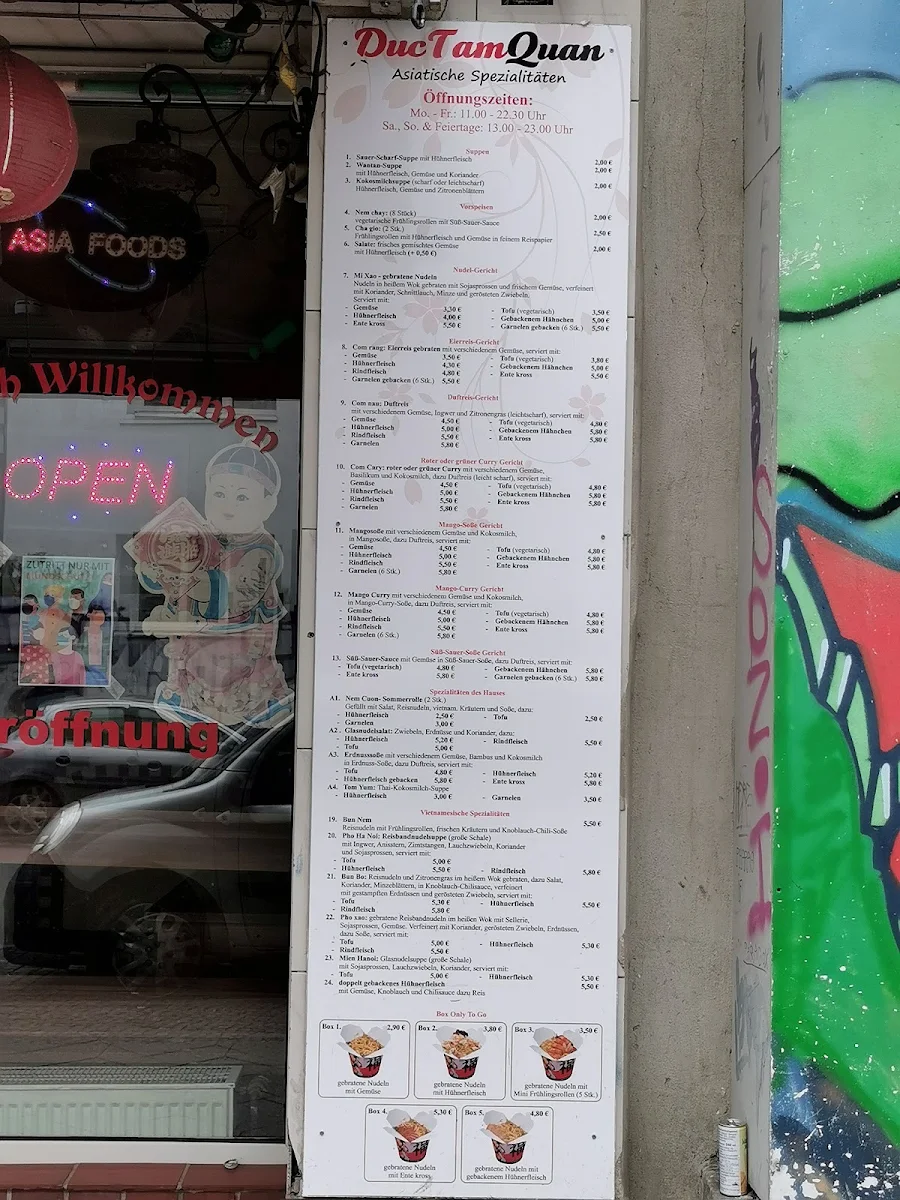 DucTamQuan
Asiatische Spezialitäten
Öffnungszeiten:
Mo. - Fr.: 11.00 - 22.30 Uhr
Sa., So. & Feiertage: 13.00 - 23.00 Uhr
Suppen
1. Sauer-Scharf-Suppe mit Hühnerfleisch 2,00 €
2. Wantan-Suppe 2,00 €
mit Hühnerfleisch, Gemüse und Koriander
3. Kokosmilchsuppe (scharf oder leichtscharf) 2,00 €
Hühnerfleisch, Gemüse und Zitronenblättern
Vorspeisen
4. Nem chay: (8 Stück) 2,00 €
vegetarische Frühlingsrollen mit Süß-Sauer-Sauce
5. Cha gio: (2 Stk.) 2,50 €
Frühlingsrollen mit Hühnerfleisch und Gemüse in feinem Reispapier
6. Salate: frisches gemischtes Gemüse 2,00 €
mit Hühnerfleisch (+ 0,50 €)
Nudel-Gericht
7. Mi Xao - gebratene Nudeln
Nudeln in heißem Wok gebraten mit Sojasprossen und frischem Gemüse, verfeinert
mit Koriander, Schnittlauch, Minze und gerösteten Zwiebeln,
Serviert mit:
- Gemüse 3,30 € - Tofu (vegetarisch) 3,50 €
- Hühnerfleisch 4,00 € - Gebackenem Hähnchen 5,00 €
- Ente kross 5,50 € - Garnelen gebacken (6 Stk.) 5,50 €
Eierreis-Gericht
8. Com rang: Eierreis gebraten mit verschiedenem Gemüse, serviert mit:
- Gemüse 3,50 € - Tofu (vegetarisch) 3,80 €
- Hühnerfleisch 4,30 € - Gebackenem Hähnchen 5,00 €
- Rindfleisch 4,80 € - Ente kross 5,50 €
- Garnelen gebacken (6 Stk.) 5,50 €
Duftreis-Gericht
9. Com nau: Duftreis
mit verschiedenem Gemüse, Ingwer und Zitronengras (leichtscharf), serviert mit:
- Gemüse 4,50 € - Tofu (vegetarisch) 4,80 €
- Hühnerfleisch 5,00 € - Gebackenem Hähnchen 5,80 €
- Rindfleisch 5,50 € - Ente kross 5,80 €
- Garnelen 5,80 €
Roter oder grüner Curry Gericht
10. Com Cary: roter oder grüner Curry mit verschiedenem Gemüse,
Basilikum und Kokosmilch, dazu Duftreis (leicht scharf), serviert mit:
- Gemüse 4,50 € - Tofu (vegetarisch) 4,80 €
- Hühnerfleisch 5,00 € - Gebackenem Hähnchen 5,80 €
- Rindfleisch 5,50 € - Ente kross 5,80 €
- Garnelen 5,80 €
Mango-Soße Gericht
11. Mangosoße mit verschiedenem Gemüse und Kokosmilch,
in Mangosoße, dazu Duftreis, serviert mit:
- Gemüse 4,50 € - Tofu (vegetarisch) 4,80 €
- Hühnerfleisch 5,00 € - Gebackenem Hähnchen 5,80 €
- Rindfleisch 5,50 € - Ente kross 5,80 €
- Garnelen (6 Stk.) 5,80 €
Mango-Curry Gericht
12. Mango Curry mit verschiedenem Gemüse und Kokosmilch,
in Mango-Curry-Soße, dazu Duftreis, serviert mit:
- Gemüse 4,50 € - Tofu (vegetarisch) 4,80 €
- Hühnerfleisch 5,00 € - Gebackenem Hähnchen 5,80 €
- Rindfleisch 5,50 € - Ente kross 5,80 €
- Garnelen (6 Stk.) 5,80 €
Süß-Sauer-Soße Gericht
13. Süß-Sauer-Sauce mit Gemüse in Süß-Sauer-Soße, dazu Duftreis, serviert mit:
- Tofu (vegetarisch) 4,80 € - Gebackenem Hähnchen 5,80 €
- Ente kross 5,80 € - Garnelen gebacken (6 Stk.) 5,80 €
Spezialitäten des Hauses
A1. Nem Cuon- Sommerrolle (2 Stk.)
Gefüllt mit Salat, Reisnudeln, vietnam. Kräutern und Soße, dazu:
- Hühnerfleisch 2,50 € - Tofu 2,50 €
- Garnelen 3,00 €
A2. Glasnudelsalat: Zwiebeln, Erdnüsse und Koriander, dazu:
- Hühnerfleisch 5,20 € - Rindfleisch 5,50 €
- Tofu 5,00 €
A3. Erdnusssoße mit verschiedenem Gemüse, Bambus und Kokosmilch
in Erdnuss-Soße, dazu Duftreis, serviert mit:
- Tofu 4,80 € - Hühnerfleisch 5,20 €
- Hühnerfleisch gebacken 5,80 € - Ente kross 5,80 €
A4. Tom Yum: Thai-Kokosmilch-Suppe
- Hühnerfleisch 3,00 € - Garnelen 3,50 €
Vietnamesische Spezialitäten
19. Bun Nem 5,50 €
Reisnudeln mit Frühlingsrollen, frischen Kräutern und Knoblauch-Chili-Soße
20. Pho Ha Noi: Reisbandnudelsuppe (große Schale)
mit Ingwer, Anisstern, Zimtstangen, Lauchzwiebeln, Koriander
und Sojasprossen, serviert mit:
- Tofu 5,00 €
- Hühnerfleisch 5,50 € - Rindfleisch 5,80 €
21. Bun Bo: Reisnudeln und Zitronengras im heißem Wok gebraten, dazu Salat,
Koriander, Minzeblättern, in Knoblauch-Chilisauce, verfeinert
mit gestampften Erdnüssen und gerösteten Zwiebeln, serviert mit:
- Tofu 5,30 € - Hühnerfleisch 5,50 €
- Rindfleisch 5,80 €
22. Pho xao: gebratene Reisbandnudeln im heißen Wok mit Sellerie,
Sojasprossen, Gemüse. Verfeinert mit Koriander, gerösteten Zwiebeln, Erdnüssen,
dazu Soße, serviert mit:
- Tofu 5,00 € - Hühnerfleisch 5,30 €
Rindfleisch 5,50 €
23. Mien Hanoi: Glasnudelsuppe (große Schale)
mit Sojasprossen, Lauchzwiebeln, Koriander, serviert mit:
- Tofu 5,00 € - Hühnerfleisch 5,30 €
24. doppelt gebackenes Hühnerfleisch 5,50 €
mit Gemüse, Knoblauch und Chilisauce dazu Reis
Box Only To Go
Box 1. 2,90 €
gebratene Nudeln
mit Gemüse
Box 2. 3,80 €
gebratene Nudeln
mit Hühnerfleisch
Box 3. 3,50 €
gebratene Nudeln mit
Mini Frühlingsrollen (5 Stk.)
Box 4. 5,30 €
gebratene Nudeln
mit Ente kross
Box 5. 4,80 €
gebratene Nudeln mit
gebackenem Hühnerfleisch
ASIA FOODS
h Willkommen
OPEN
ZUTRITT NUR MIT
röffnung